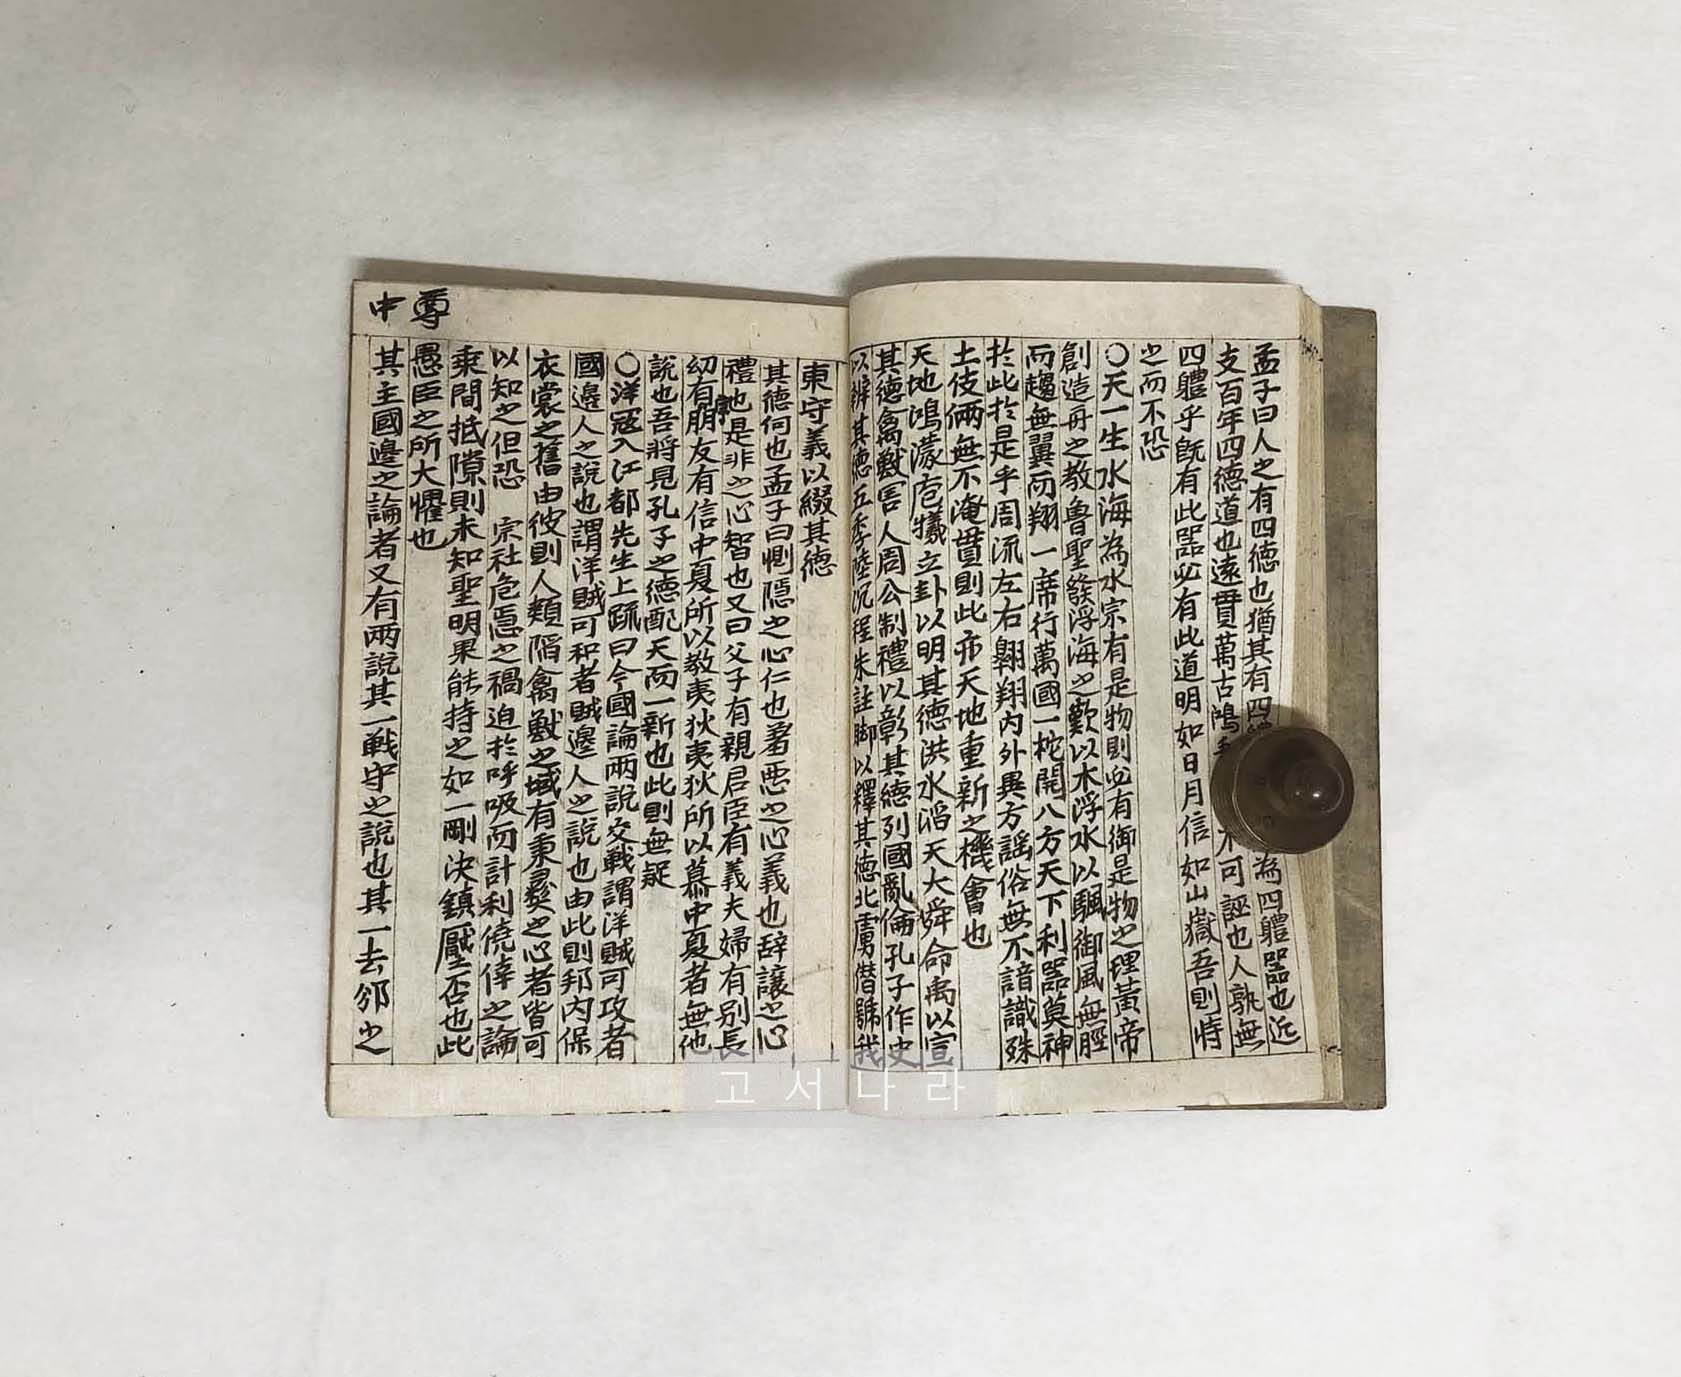 孟子曰人之有四德也猶其有四
為四軆器也近
支百年四德道也遠貫萬古鴻
不可誣也人孰無
四軆乎旣有此器必有此道明如日月信如山嶽吾則恃
之而不恐
○天一生水海為水宗有是物則必有御是物之理黃帝
創造舟之教魯聖發浮海之歎以木浮水以颿御風無脛
而趨無翼而翔一席行萬國一柁開八方天下利器莫神
扵此扵是乎周流左右翱翔內外異方謡俗無不諳識殊
土伎倆無不淹貫則此亦天地重新之機會也
天地鴻濛庖犧立卦以明其德洪水滔天大舜命禹以宣
其德禽獸害人周公制禮以彰其德列國亂倫孔子作史
以辨其德五季陸沉程朱註脚以釋其德北虜僭號我
東守義以綴其德
其德何也孟子曰惻隱之心仁也羞惡之心義也辞讓之心
禮也是非之心智也又曰父子有親君臣有義夫婦有别長
幼有序朋友有信中夏所以教夷狄夷狄所以慕中夏者無他
說也吾將見孔子之德配天而一新也此則無疑
○洋寇入江都先生上䟽曰今國論兩說交戰謂洋賊可攻者
國邊人之說也謂洋賊可和者賊邊人之說也由此則邦內保
衣裳之舊由彼則人類陷禽獸之域有秉彛之心者皆可
以知之但恐 宗社危惡之禍迫於呼吸而計利僥倖之論
乘間抵隙則未知聖明果能持之如一剛決鎮壓否也此
愚臣之所大懼也
尊中
其主國邊之論者又有兩說其一戰守之說也其一去邠之
고서나라